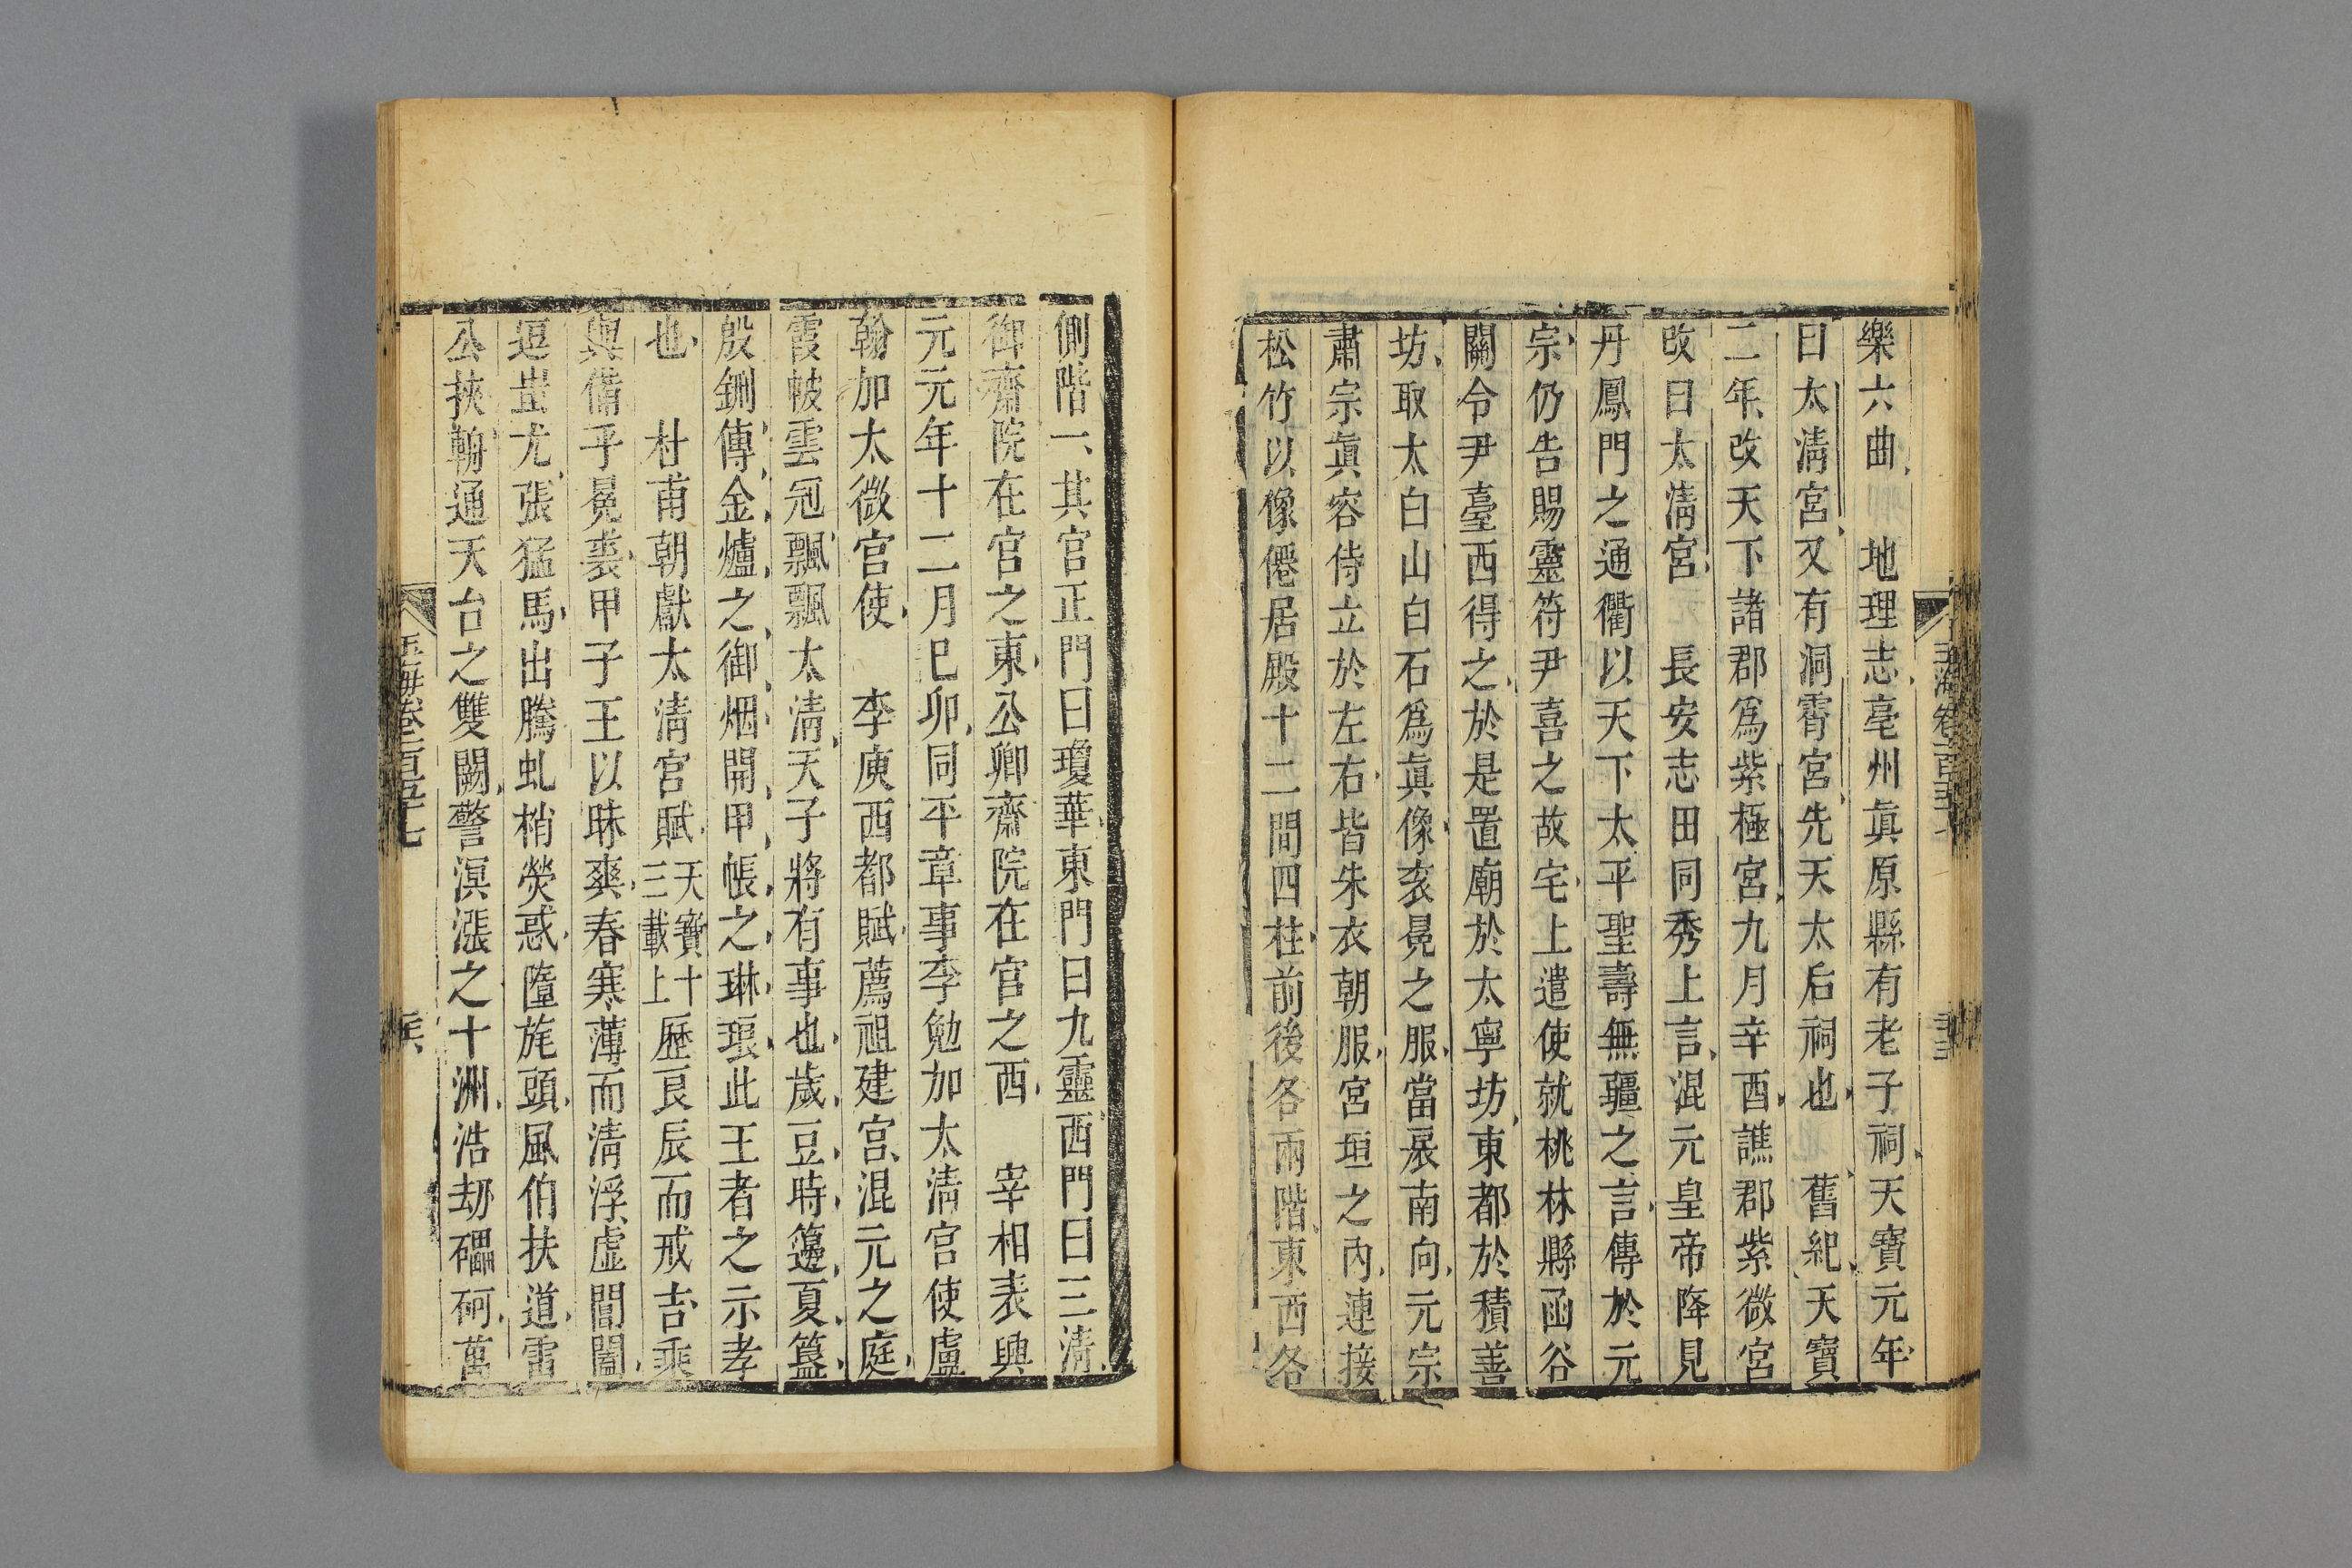 樂六曲 地理志亳州眞原縣有老子祠天寶元年
曰太淸宮又有洞霄宮先天太后祠也 舊紀天寶
二年改天下諸郡爲紫極宮九月辛酉譙郡紫微宮
改曰太淸宮 長安志田同秀上言混元皇帝降見
丹鳳門之通衢以天下太平聖壽無疆之言傳於元
宗仍告賜靈符尹喜之故宅上遣使就桃林縣函谷
關令尹臺西得之於是置廟於太寧坊東都於積善
坊取太白山白石爲眞像衮冕之服當扆南向元宗
肅宗眞容侍立於左右皆朱衣朝服宮垣之內連接
松竹以像僊居殿十二間四柱前後各兩階東西各
側階一其宫正門曰瓊華東門曰九靈西門曰三淸
御齋院在宫之東公卿齋院在宫之西 宰相表興
元元年十二月巳卯同平章事李勉加太淸宫使盧
翰加太微宫使 李庾西都賦薦祖建宫混元之庭
霞帔雲冠飄飄太淸天子將有事也歲豆時籩夏簋
殷鉶傳金爐之御烟開甲帳之琳琅此王者之示孝
也 杜甫朝獻太淸宮賦天寶十三載上歷良辰而戒吉乘
輿備乎冕裘甲子王以昧爽春寒薄而淸浮虛閶闔
逗蚩尤張猛馬出騰虬梢熒惑墮旄頭風伯扶道雷
公挾輈通天台之雙闕警溟漲之十洲浩劫礧砢萬
玉海卷一百五十七